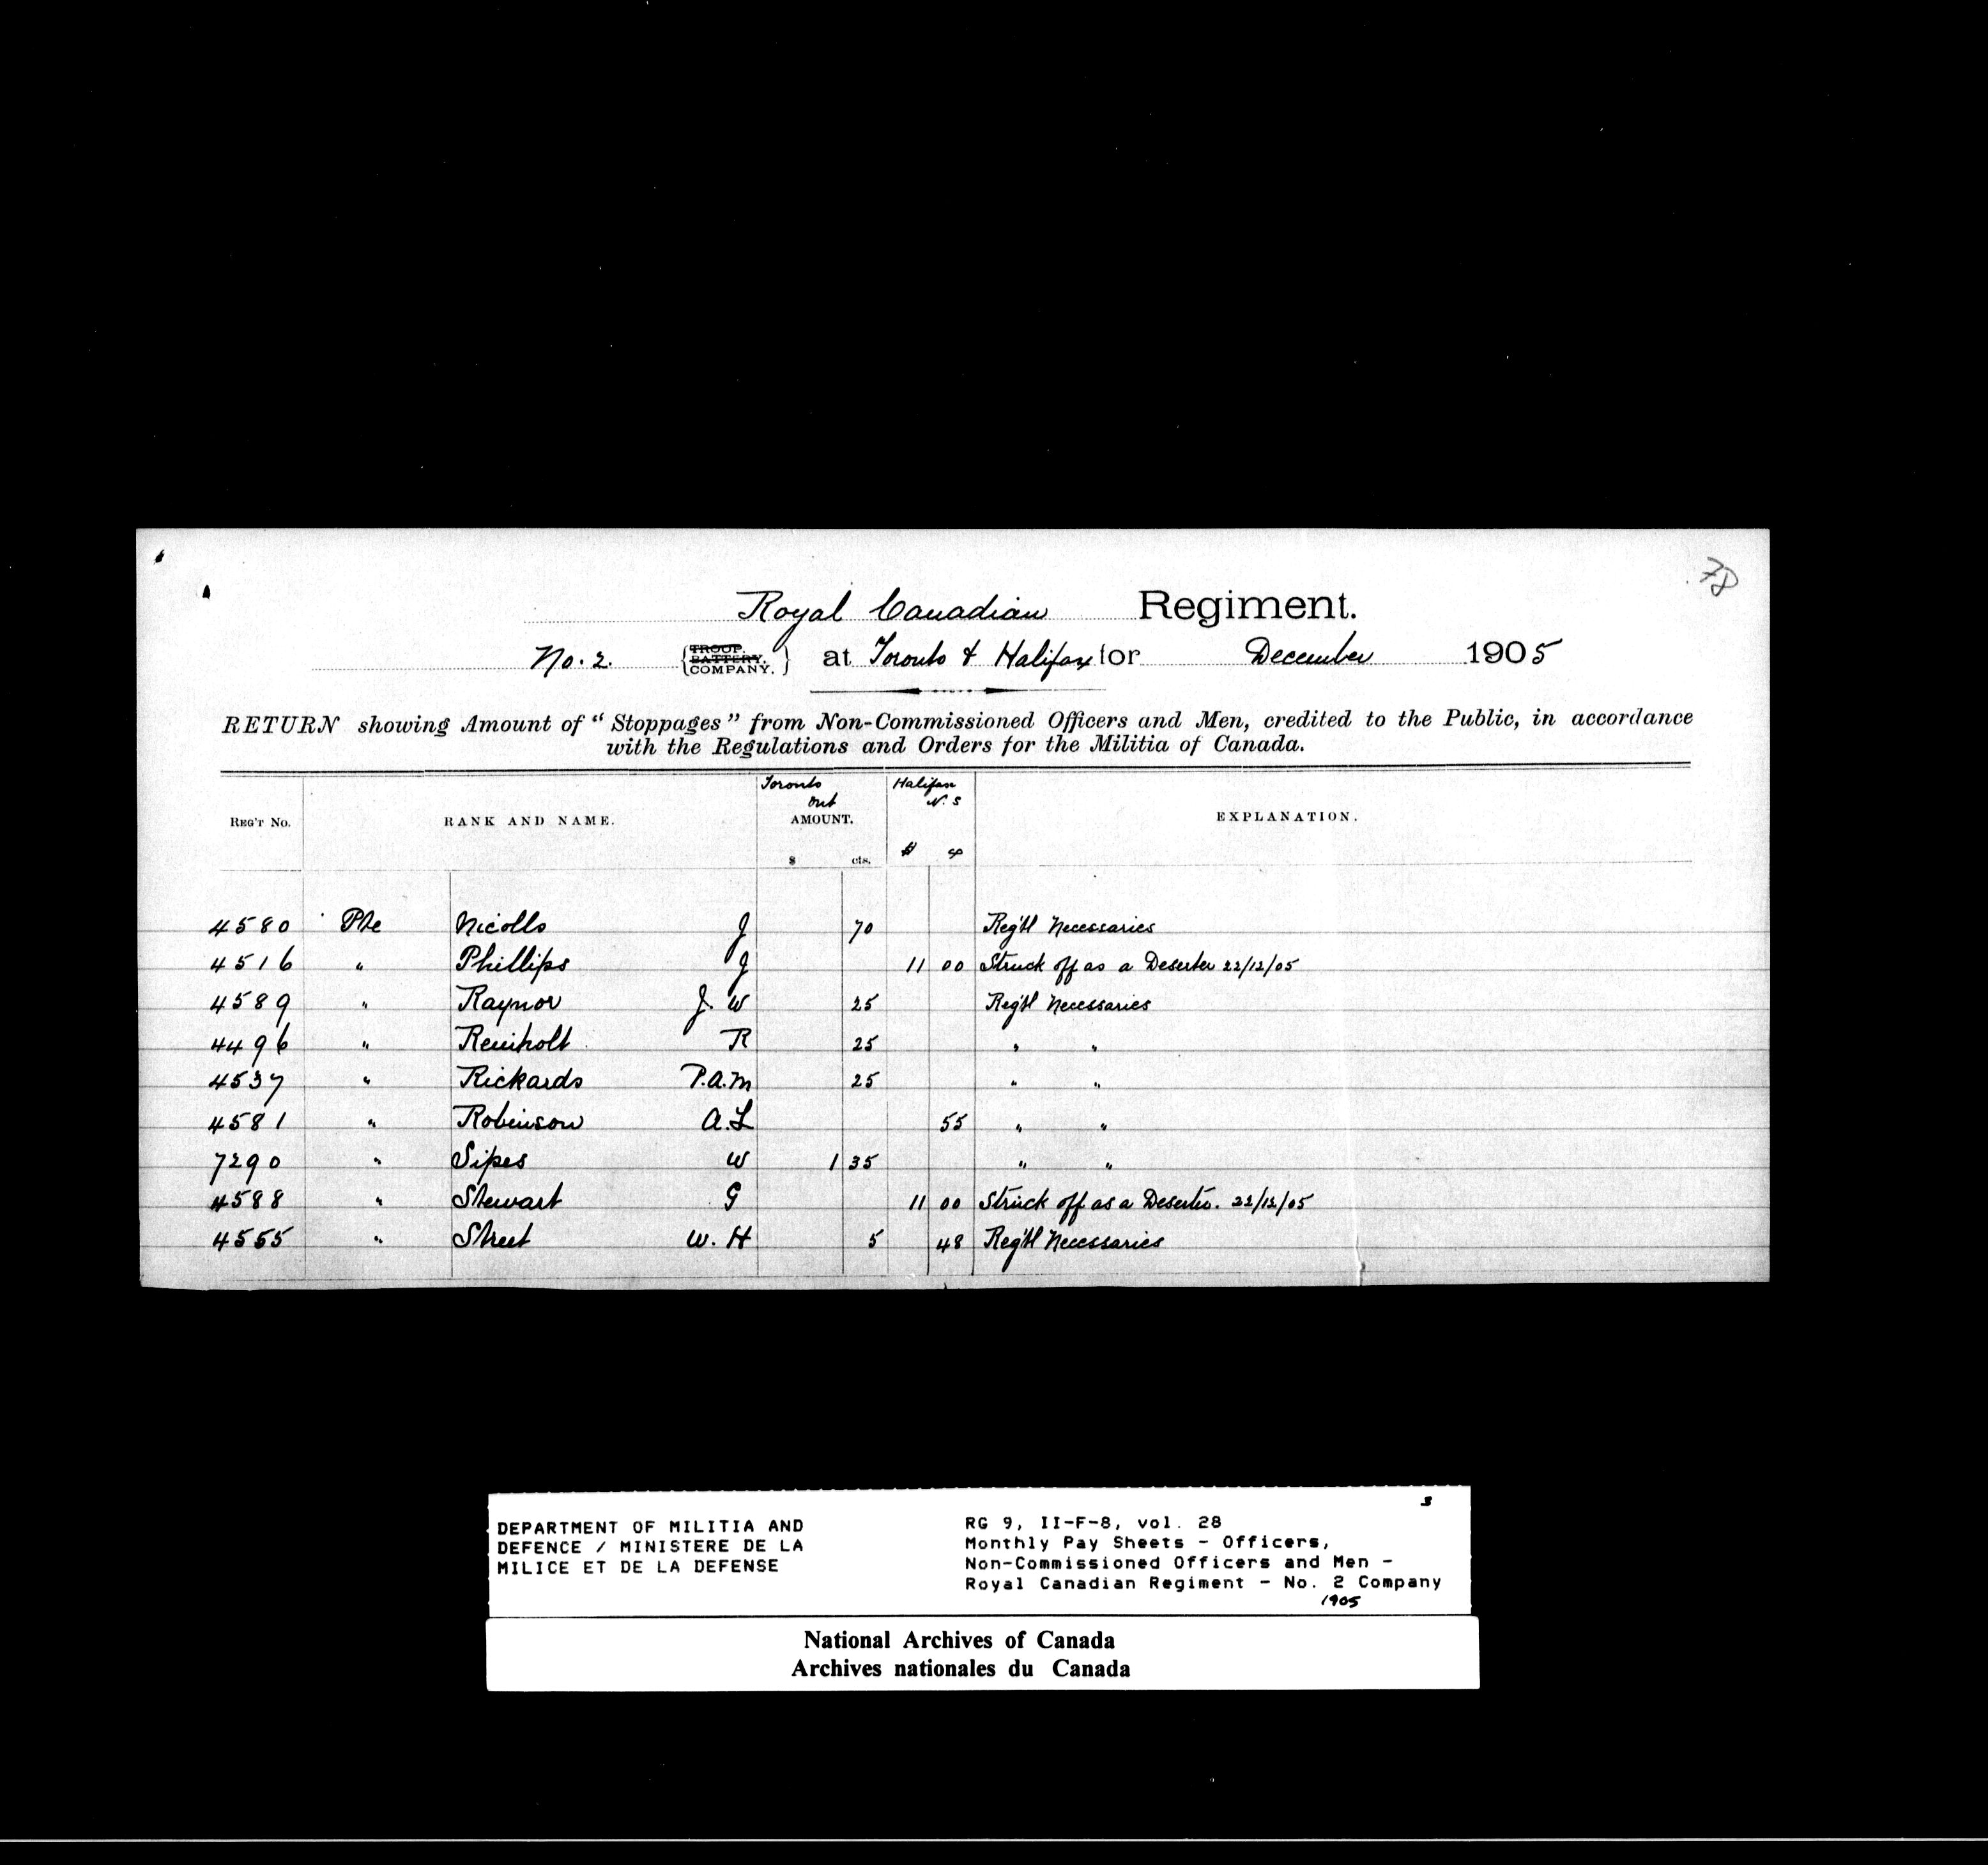 78
Royal Canadian Regiment.
No. 2. {TROUP. BATTERY. COMPANY.} at Toronto & Halifax for December 1905
RETURN showing Amount of "Stoppages" from Non-Commissioned Officers and Men, credited to the Public, in accordance
with the Regulations and Orders for the Militia of Canada.
Toronto Halifax
Ont N.S
REG'T No. RANK AND NAME. AMOUNT. EXPLANATION.
$ cts. $ ¢
4580 Pte Nicolls J 70 Reg'tl Necessaries
4516 " Phillips J 11 00 Struck off as a Deserter 22/12/05
4589 " Raynor J. W 25 Reg'tl Necessaries
4496 " Reinholt R 25 " "
4537 " Rickards P.A.M 25 " "
4581 " Robinson A.L 55 " "
7290 " Sipes W 1 35 " "
4588 " Stewart G 11 00 Struck off as a Deserter. 22/12/05
4555 " Street W. H 5 48 Reg'tl Necessaries
3
DEPARTMENT OF MILITIA AND
DEFENCE / MINISTERE DE LA
MILICE ET DE LA DEFENSE
RG 9, II-F-8, vol. 28
Monthly Pay Sheets - Officers,
Non-Commissioned Officers and Men -
Royal Canadian Regiment - No. 2 Company
1905
National Archives of Canada
Archives nationales du Canada